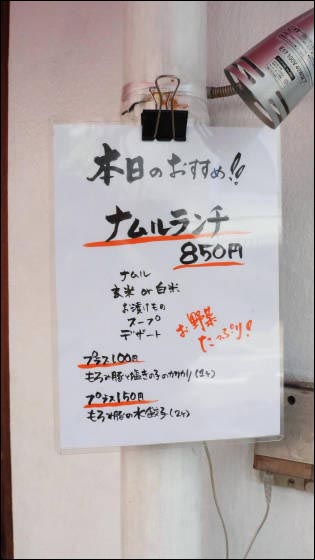 本日のおすすめ!!
ナムルランチ
850円
ナムル
玄米 or 白米
お漬けもの
スープ
デザート
お野菜
たっぷり!
プラス100円
プラス150円
もろみ豚の水餃子(2ヶ)